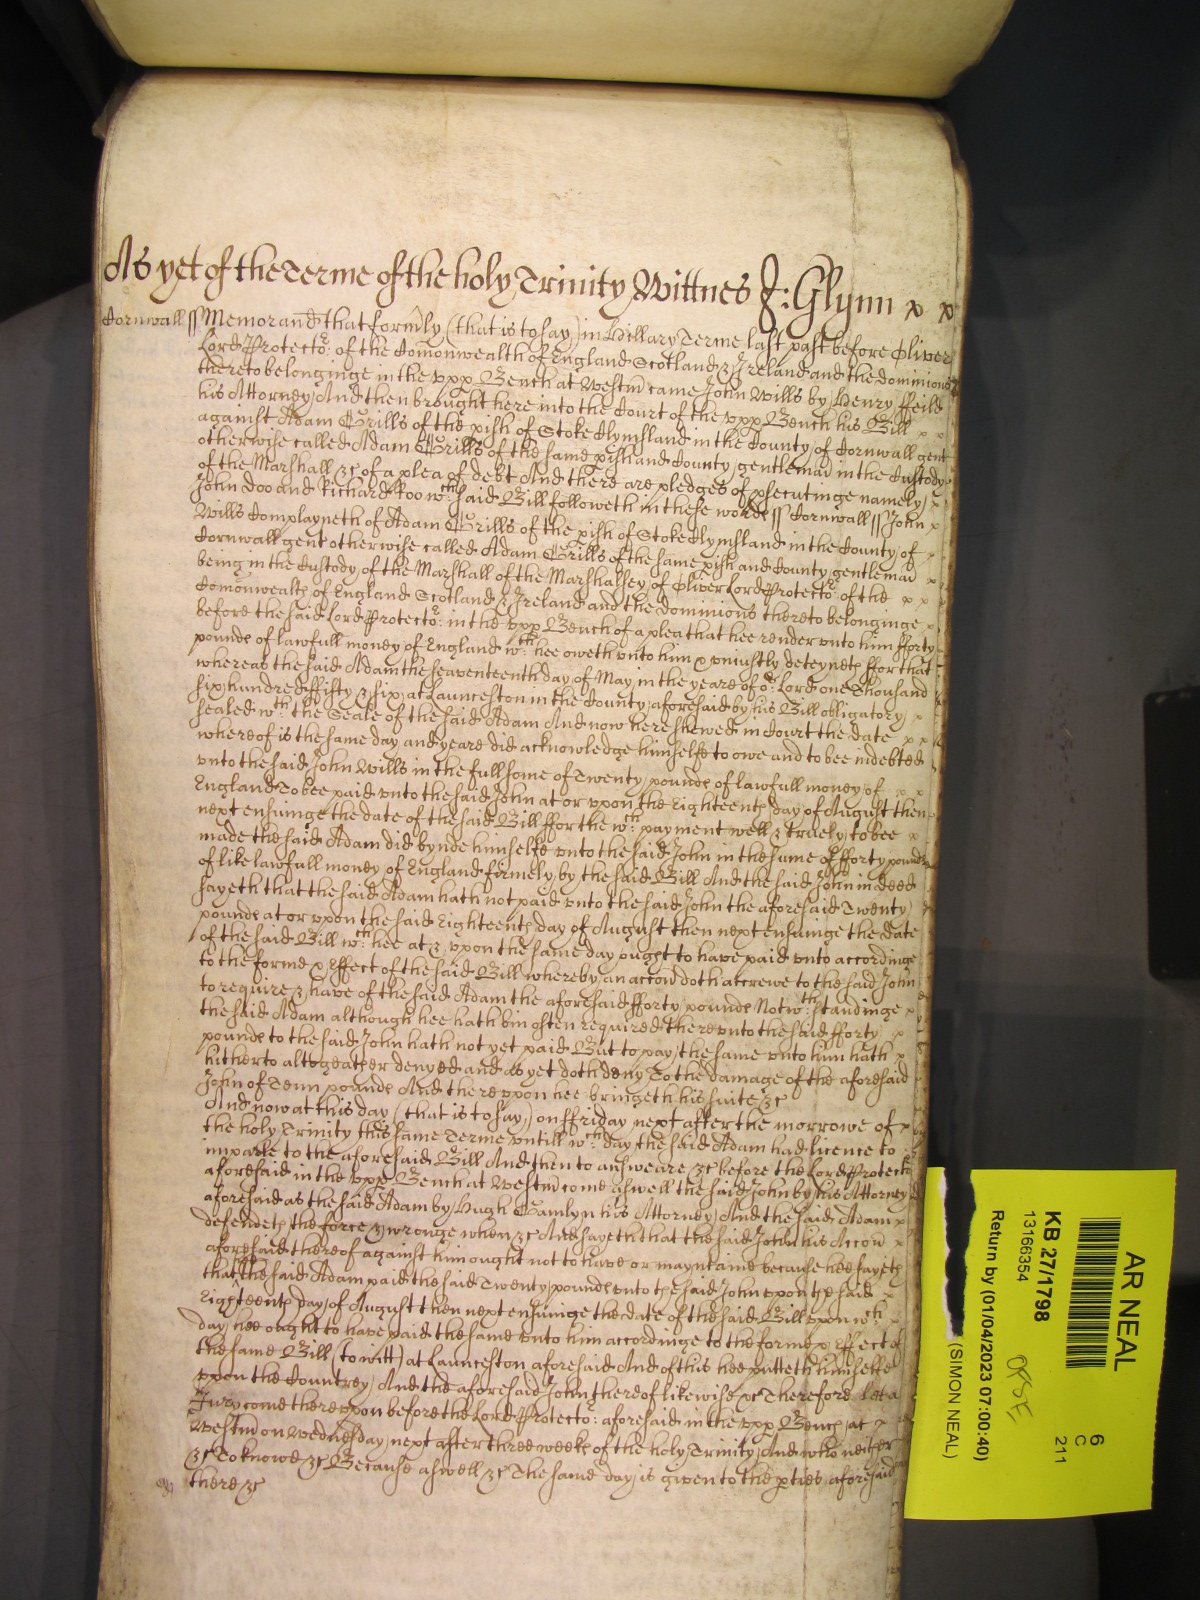 As yet of the Terme of the holy Trinity Wittnes J: Glynn x x
Cornwall ss Memorand that formly (that is to say) in Hillary Terme last past before Oliver
Lord Protector: of the Comonwealth of England Scotland & Ireland and the dominions
thereto belonginge in the vpp Bench at Westm came John Wills by Henry Feild
his Attorney And then brought here into the Court of the vpp Bench his Bill x x
against Adam Grills of the pish of Stoke Clymsland in the County of Cornwall gent
otherwise called Adam Grills of the same pish and County gentleman in the Custody
of the Marshall &c of a plea of debt And there are pledges of psecutinge namely x
John Doo and Richard Roo wch said Bill followeth in these words ss Cornwall ss John x
Wills Complayneth of Adam Grills of the pish of Stoke Clymsland in the County of x
Cornwall gent otherwise called Adam Grills of the same pish and County gentleman x
being in the Custody of the Marshall of the Marshalsey of Oliver Lord Protector of the x x
Comonwealth of England Scotland & Ireland and the dominions thereto belonginge x
before the said Lord Protector: in the vpp Bench of a plea that hee render vnto him fforty
pounds of lawfull money of England wch hee oweth vnto him & vniustly deteyneth ffor that
whereas the said Adam the seaventeenth day of May in the yeare of or Lord one Thousand
six hundred ffifty & six at Launceston in the County aforesaid by his Bill obligatory x
sealed wth the Seale of the said Adam And now here shewed in Court the date x x
whereof is the same day and yeare did acknowledge himselfe to owe and to bee indebted
vnto the said John Wills in the full some of Twenty pounds of lawfull money of x x
England To bee paid vnto the said John at or vpon the Eighteenth day of August then
next ensuinge the date of the said Bill ffor the wch payment well & truely to bee x
made the said Adam did bynde himselfe vnto the said John in the sume of fforty pounds
of like lawfull money of England firmely by the said Bill And the said John in deed
sayeth that the said Adam hath not paid vnto the said John the aforesaid Twenty
pounds at or vpon the said Eighteenth day of August then next ensuinge the date
of the said Bill wch hee at & vpon the same day ought to have paid vnto accordinge
to the forme & Effect of the said Bill whereby an accon doth accrewe to the said John
to require & have of the said Adam the aforesaid fforty pounds Notwthstandinge x
the said Adam although hee hath bin often required therevnto the said fforty x
pounds to the said John hath not yet paid But to pay the same vnto him hath x
hitherto altogeather denyed and as yet doth deny To the damage of the aforesaid
John of Tenn pounds And therevpon hee bringeth his suite &c
And now at this day (that is to say) on ffriday next after the morrowe of x
the holy Trinity this same Terme vntill wch day the said Adam had licence to
imparle to the aforesaid Bill And then to answeare &c before the Lord Protector
aforesaid in the vpp Bench at Westm come aswell the said John by his Attorney
aforesaid as the said Adam by Hugh Gamlyn his Attorney And the said Adam x
defendeth the force & wronge when &c And sayeth that the said John his Accon x
aforesaid thereof against him ought not to have or mayntaine because hee sayeth
that the said Adam paid the said Twenty pounds vnto the said John vpon the said x
Eighteenth day of August then next ensuinge the date of the said Bill vpon wch x
day hee ought to have paid the same vnto him accordinge to the forme & Effect of
the same Bill (to witt) at Launceston aforesaid And of this hee putteth himselfe
vpon the Countrey And the aforesaid John thereof likewise &c Therefore Let a
Jury come therevpon before the Lord Protector: aforesaid in the vpp Bench at x
Westm on Wednesday next after three weeks of the holy Trinity And who neither
&c To knowe &c Because aswell &c The same day is given to the pties aforesaid
there &c
AR NEAL
6
C
211
KB 27/1798
13166354
Return by (01/04/2023 07:00:40)
(SIMON NEAL)